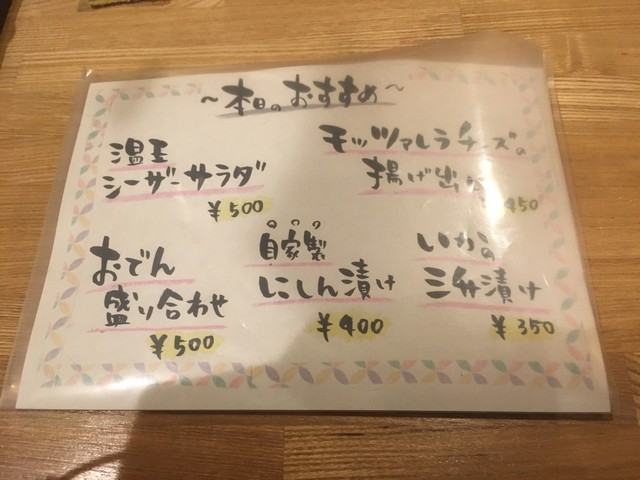 ～本日のおすすめ～
温玉
シーザーサラダ
¥500
モッツァレラチーズの
揚げ出し
¥450
おでん
盛り合わせ
¥500
自家製
にしん漬け
¥400
いかの
三升漬け
¥350